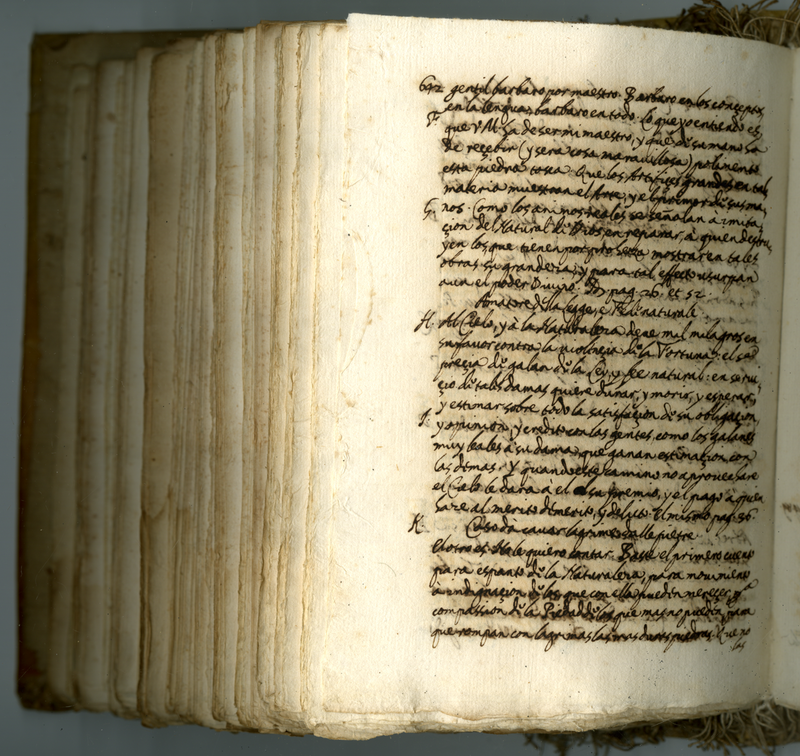 642 gentil barbaro por maestro. Barbaro en los conceptos,
en la lengua, barbaro en todo. Lo que yo entiendo es,
F. que V.M. ha de ser mi maestro, y que de su mano ha
de recebir (y sera cosa maravillosa) polimento
esta piedra tosca. Que los Artifices grandes en tal
materia muestran el Arte, y el primor de sus ma-
G. nos. Como los animos reales se señalan à imita-
çion del Natural de Dios, en reparar, à quien destru-
yen los que tienen por mostrar en tales
obras su grandeza, y para tal effecto usurpan
aun el poder Divino. pag. 26. et 52.
Amatore della legge, e Fede naturale
H. Al Cielo, y à la Naturaleza deve mil milagros en
su favor contra la violençia de la Fortuna: el se
preçia de galan de la Ley, y fee natural: en servi-
çio de tales damas quiere durar, y morir, y esperar,
y estimar sobre todo la satisfaçion de su obligaçion,
I. y opinion, y credito con las gentes, como los galanes
muy leales à su dama, que ganan estimaçion con
las demas. Y quando este camino no aprovechare
el Cielo le dara à el su premio, y el pago à quien
hare al merito demerito, y delito. El mismo pag. 36.
K. Caso da cavar lagrime dalle pietre
El otro es. No le quiero contar. Baste el primero cuento
para espanto de la Naturaleza, para movimiento
à indignaçion de los que con ella pueden mereçer, para
compassion de la Piedad de los que mas no pueden, para
que rompan con lagrimas las mas duras piedras. Que no
las